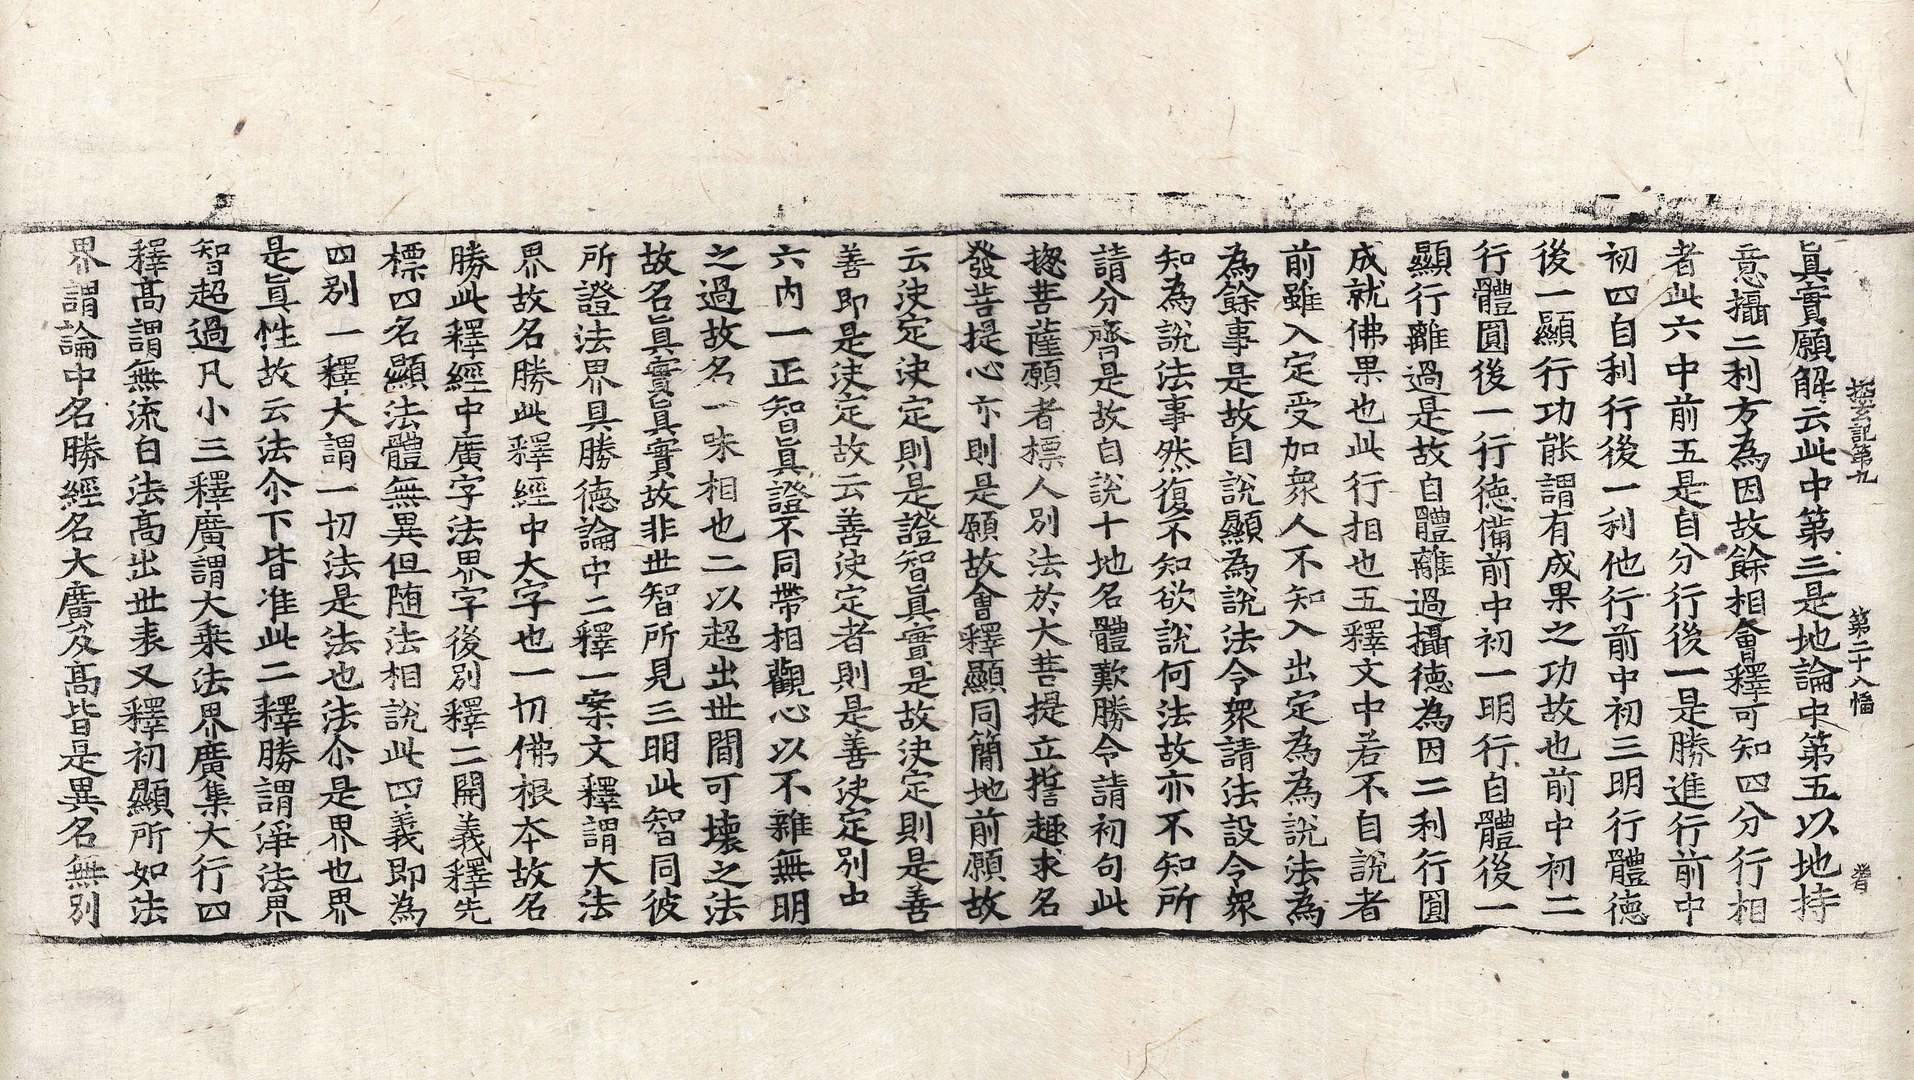 探玄記第九　第二十八幅
眞實願解云此中第三是地論中第五以地持
意攝二利方為因故餘相會釋可知四分行相
者此六中前五是自分行後一是勝進行前中
初四自利行後一利他行前中初三明行體德
後一顯行功能謂有成果之功故也前中初二
行體圓後一行德備前中初一明行自體後一
顯行離過是故自體離過攝德為因二利行圓
成就佛果也此行相也五釋文中若不自說者
前雖入定受加衆人不知入出定為為說法為
為餘事是故自說顯為說法令衆請法設令衆
知為說法事然復不知欲說何法故亦不知所
請分齊是故自說十地名體歎勝令請初句此
揔菩薩願者標人別法於大菩提立誓趣求名
發菩提心亦則是願故會釋顯同簡地前願故
云決定決定則是證智眞實是故決定則是善
善即是決定故云善決定者則是善決定別由
六內一正智眞證不同帶相觀心以不雜無明
之過故名一味相也二以超出世間可壞之法
故名眞實眞實故非世智所見三明此智同彼
所證法界具勝德論中二釋一案文釋謂大法
界故名勝此釋經中大字也一切佛根本故名
勝此釋經中廣字法界字後別釋二開義釋先
標四名顯法體無異但随法相說此四義即為
四別一釋大謂一切法是法也法尒是界也界
是眞性故云法尒下皆准此二釋勝謂淨法界
智超過凡小三釋廣謂大乘法界廣集大行四
釋高謂無流白法高出世表又釋初顯所如法
界謂論中名勝經名大廣及高皆是異名無別